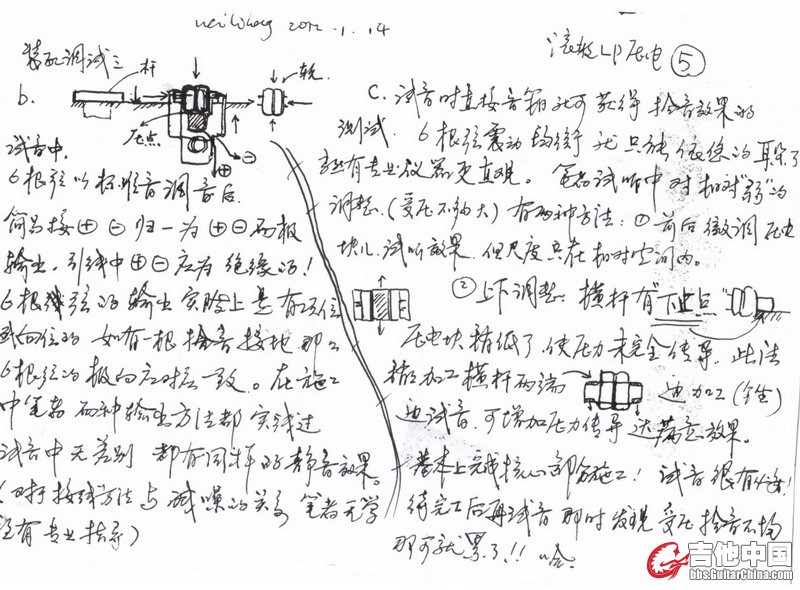 2012.1.14
装配调试三
b.
杆
轨
压点
⊕
⊖
试音中.
6根弦以标准音调音后.
简易接⊕⊖归一为⊕⊖两极
输出,引线中⊕⊖应为绝缘的!
6根弦的输出实际上是有
如有一根拾音接地那么
6根弦的极向应对应一致。在施工
中笔者两种输出方法都实践过
试音中无差别 都有同样的静音效果。
接线方法与减噪的关系 笔者无学
没有专业指导)
LP压电
⑤
C. 试音时直接音箱就可获得拾音效果的
测试. 6根弦震动均衡就只能依您的耳朵了
有专业仪器更直观。笔者试听中对相对"弱"的
调整(受压不够大)有两种方法:①前后微调压电
块儿.试听效果.但尺度只在相对空间内。
②上下调整:横杆有"下止点"
压电块稍低了.使压力未完全传导.此法
稍加工横杆两端
边加工(锉)
边试音.可增加压力传导 达满意效果。
基本上完成核心部分施工!试音很有必要!
待完工后再试音 那时发现受压拾音不均
那可就累了!!哈.
吉他中国
bbs.GuitarChina.com